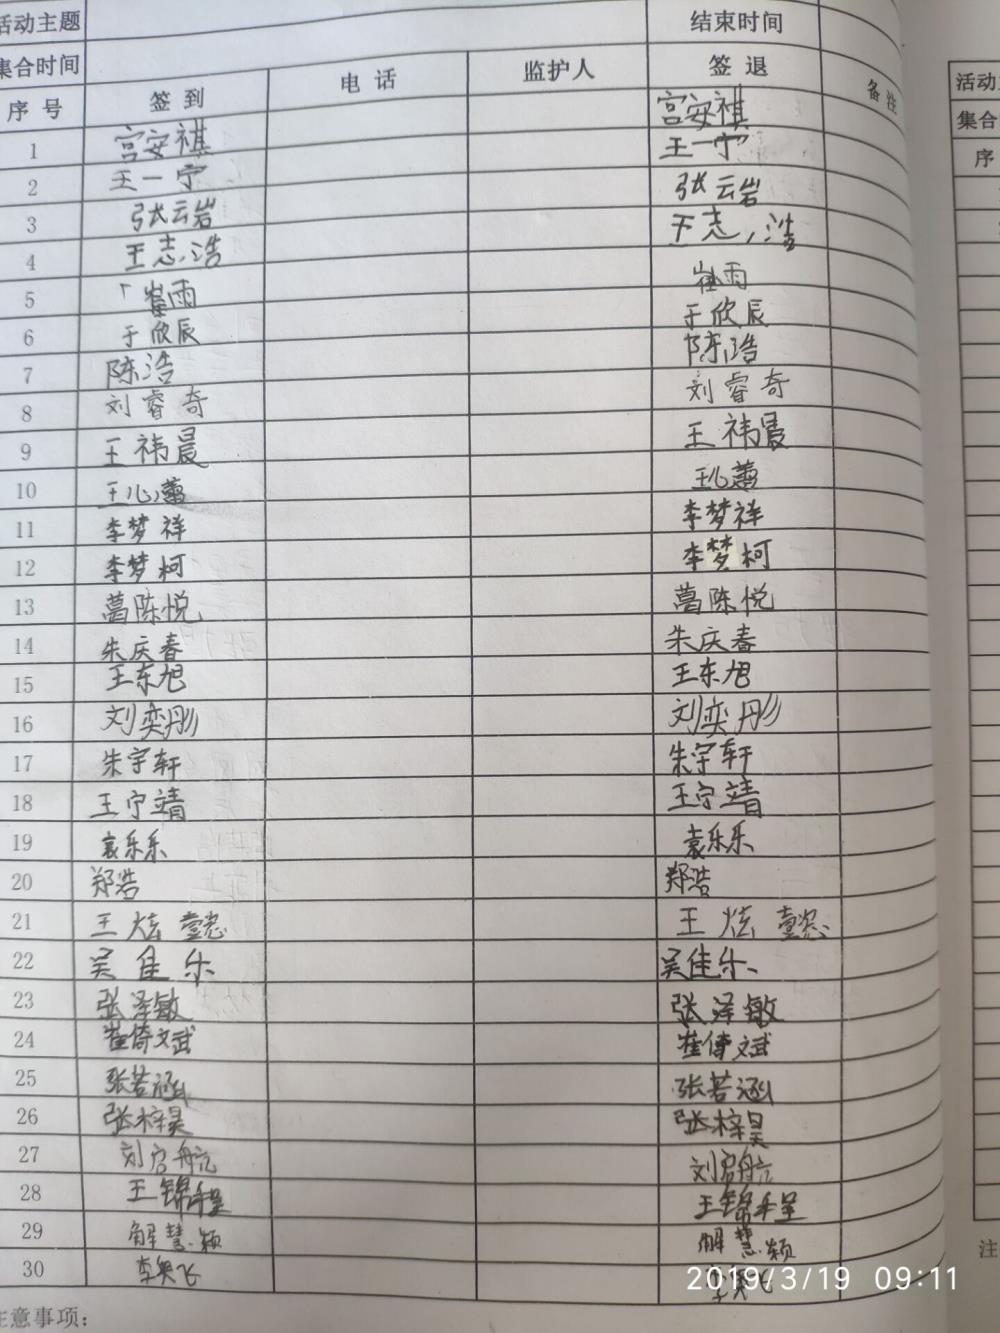 活动主题 结束时间
集合时间 电话 监护人 签退 备注
序号 签到
1 宫安祺 宫安祺
2 王一宁 王一宁
3 张云岩 张云岩
4 王志浩 王志浩
5 崔雨 崔雨
6 于欣辰 于欣辰
7 陈浩 陈浩
8 刘睿奇 刘睿奇
9 王祎晨 王祎晨
10 王心蕾 王心蕾
11 李梦祥 李梦祥
12 李梦柯 李梦柯
13 葛陈悦 葛陈悦
14 朱庆春 朱庆春
15 王东旭 王东旭
16 刘奕彤 刘奕彤
17 朱宇轩 朱宇轩
18 王宁靖 王宁靖
19 袁乐乐 袁乐乐
20 郑浩 郑浩
21 王炫懿 王炫懿
22 吴佳乐 吴佳乐
23 张泽敏 张泽敏
24 崔倚文斌 崔倚文斌
25 张若涵 张若涵
26 张梓昊 张梓昊
27 刘启航 刘启航
28 王锦程 王锦程
29 解慧颖 解慧颖
30 李奥飞
注意事项:
活动
集合
序
注
2019/3/19 09:11